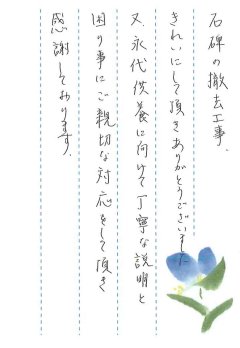 石碑の撤去工事、
きれいにして頂きありがとうございました
又、永代供養に向けて丁寧な説明と
困り事にご親切な対応をして頂き
感謝しております。